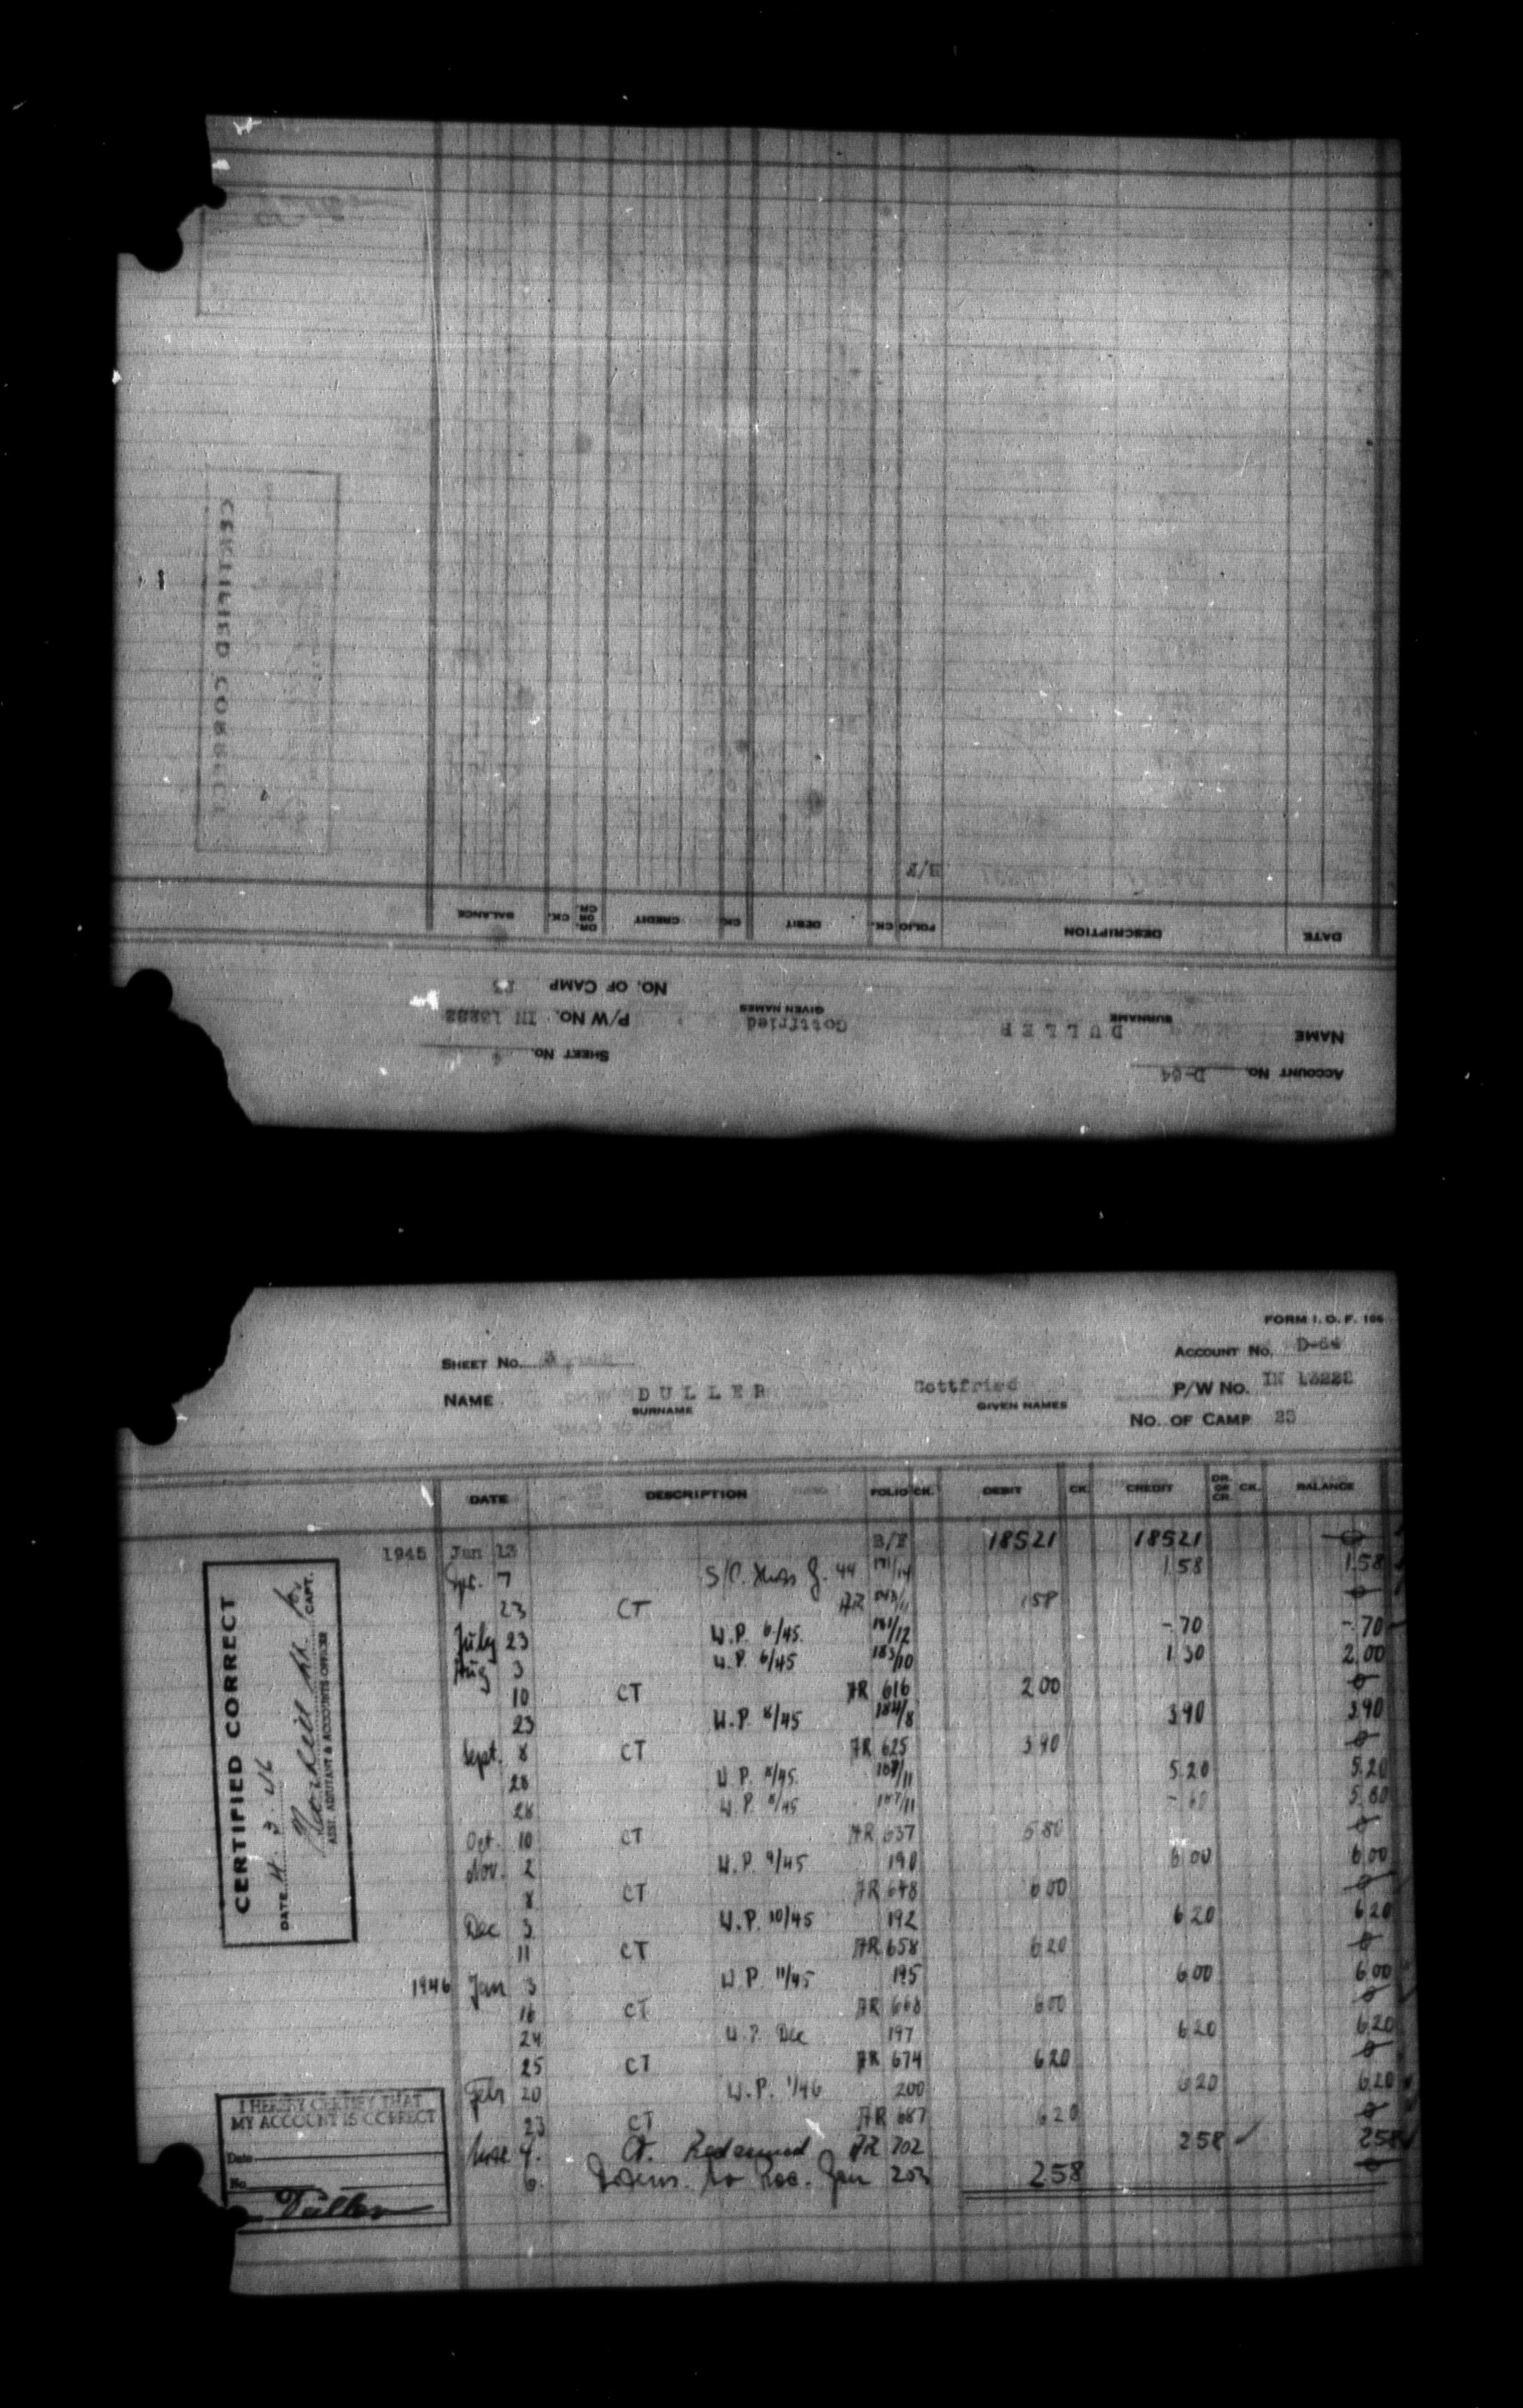 ACCOUNT No. D-64
SHEET No. 4
NAME DULLER Gottfried P/W No. IN 13222
SURNAME GIVEN NAMES
NO. OF CAMP 23
DATE DESCRIPTION FOLIO CK. DEBIT CK. CREDIT DR. OR CR. CK. BALANCE
B/F
CERTIFIED CORRECT
FORM I. O. F. 106
SHEET No. 3 ACCOUNT No. D-64
NAME DULLER Gottfried P/W No. IN 13222
SURNAME GIVEN NAMES
No. OF CAMP 23
DATE DESCRIPTION FOLIO CK. DEBIT CK. CREDIT DR. OR CR. CK. BALANCE
1945 Jan 13 B/F 185 21 185 21 0
7 44 171/14 1 58 1 58
23 CT AR 1 58 0
July 23 W.P. 6/45 181/12 - 70 - 70
Aug 3 W.P. 6/45 183/10 1 30 2 00
10 CT AR 616 2 00 0
23 W.P. 8/45 184/8 3 90 3 90
Sept. 8 CT AR 625 3 90 0
28 W.P. 8/45 187/11 5 20 5 20
28 W.P. 8/45 187/11 - 60 5 80
Oct. 10 CT AR 637 5 80 0
Nov. 2 W.P. 9/45 190 6 00 6 00
8 CT AR 648 6 00 0
Dec 3 W.P. 10/45 192 6 20 6 20
11 CT AR 658 6 20 0
1946 Jan 3 W.P. 11/45 195 6 00 6 00
16 CT AR 668 6 00 0
24 W.P. Dec 197 6 20 6 20
25 CT AR 674 6 20 0
Febr 20 W.P. 1/46 200 6 20 6 20
23 CT AR 687 6 20 0
4. Ct. Redeemed AR 702 2 58 ✓ 2 58 ✓
6. 203 2 58 0
CERTIFIED CORRECT
DATE 4. 3. 46
CAPT.
ASST. ADJUTANT & ACCOUNTS OFFICER
I HEREBY CERTIFY THAT
MY ACCOUNT IS CORRECT
Date
No.
Duller